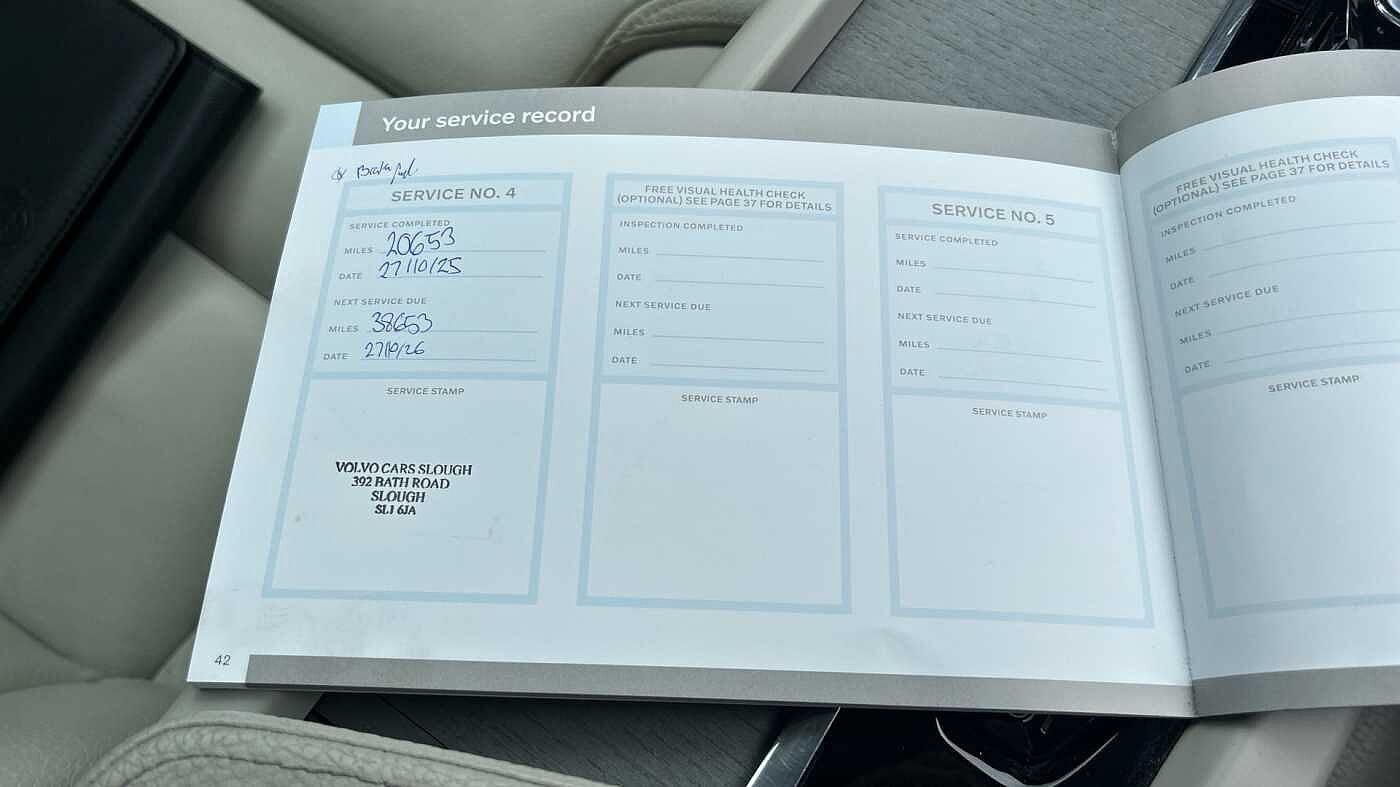 Your service record
Brake fuel
SERVICE NO. 4
SERVICE COMPLETED
MILES 20653
DATE 27/10/25
NEXT SERVICE DUE
MILES 38653
DATE 27/10/26
SERVICE STAMP
VOLVO CARS SLOUGH
392 BATH ROAD
SLOUGH
SL1 6JA
FREE VISUAL HEALTH CHECK
(OPTIONAL) SEE PAGE 37 FOR DETAILS
INSPECTION COMPLETED
MILES
DATE
NEXT SERVICE DUE
MILES
DATE
SERVICE STAMP
SERVICE NO. 5
SERVICE COMPLETED
MILES
DATE
NEXT SERVICE DUE
MILES
DATE
SERVICE STAMP
42
FREE VISUAL HEALTH CHECK
(OPTIONAL) SEE PAGE 37 FOR DETAILS
INSPECTION COMPLETED
MILES
DATE
NEXT SERVICE DUE
MILES
DATE
SERVICE STAMP